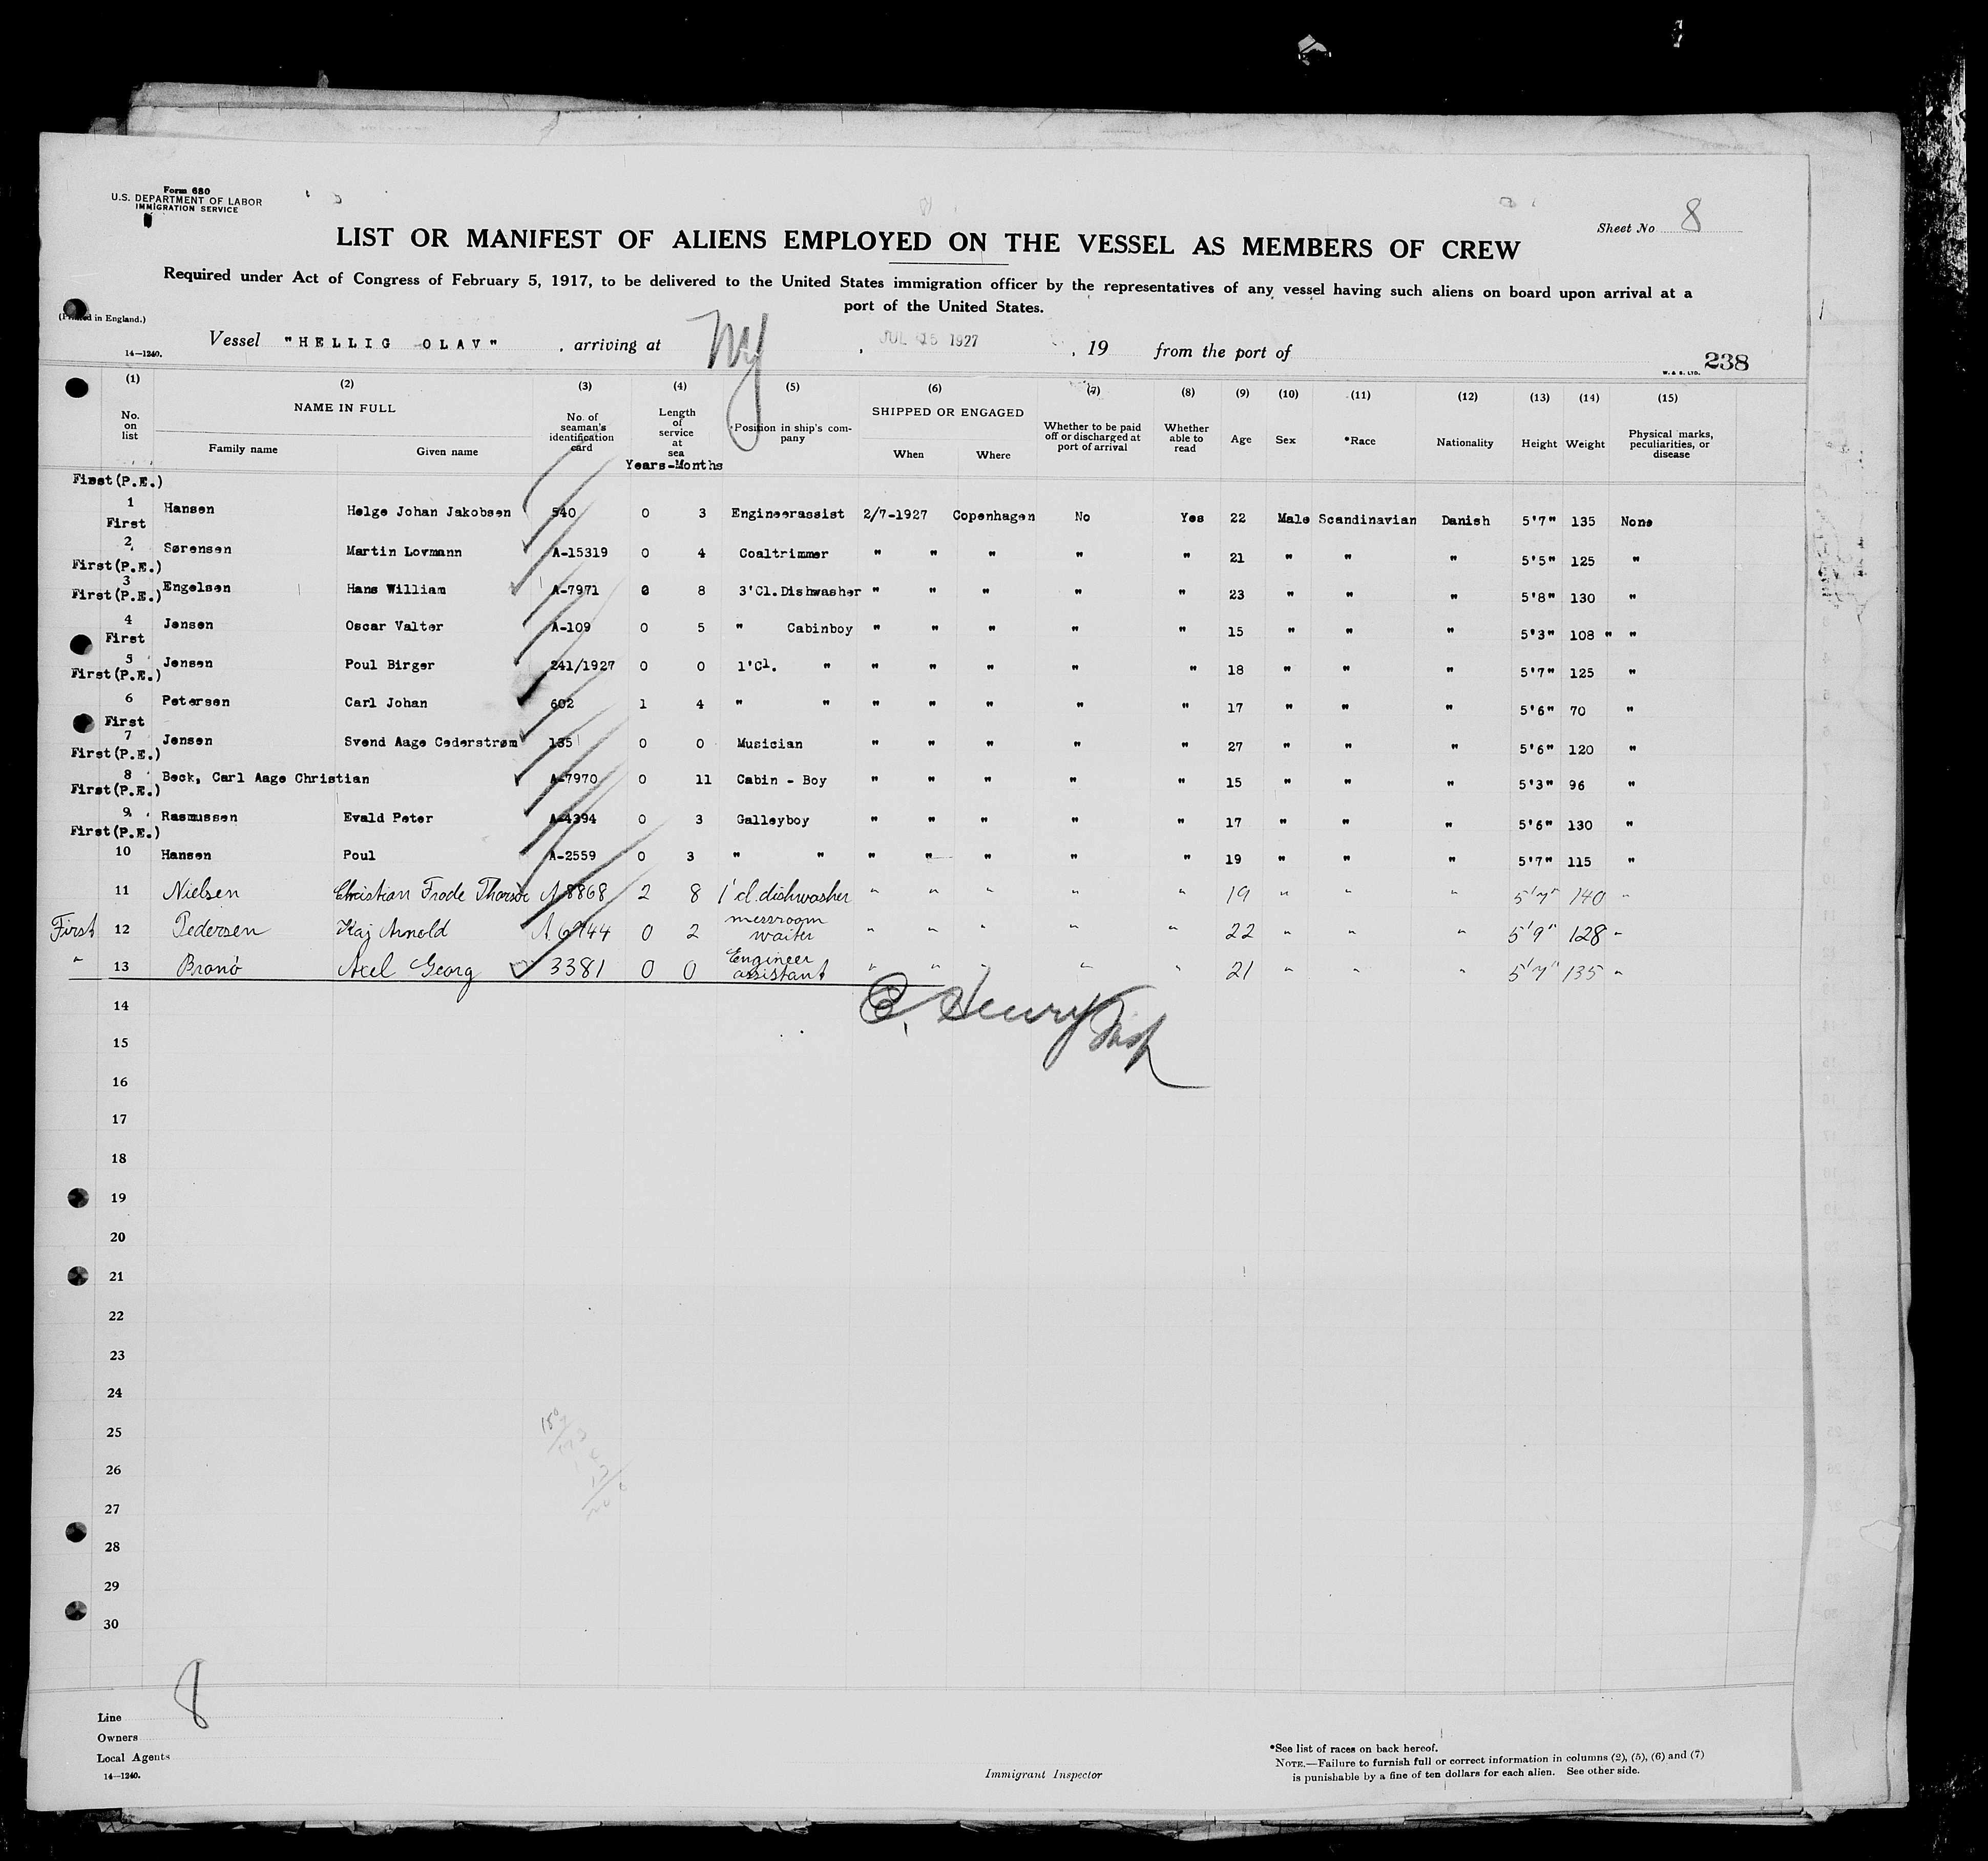 Form 680
U.S. DEPARTMENT OF LABOR
IMMIGRATION SERVICE
Sheet No 8
LIST OR MANIFEST OF ALIENS EMPLOYED ON THE VESSEL AS MEMBERS OF CREW
Required under Act of Congress of February 5, 1917, to be delivered to the United States immigration officer by the representatives of any vessel having such aliens on board upon arrival at a
port of the United States.
(Printed in England.)
Vessel "HELLIG OLAV" , arriving at NY , JUL 15 1927 , 19 from the port of
14—1240.
W. & S. LTD. 238
(1) (2) (3) (4) (5) (6) (7) (8) (9) (10) (11) (12) (13) (14) (15)
No. on list NAME IN FULL Family name Given name No. of seaman's identification card Length of service at sea Position in ship's company SHIPPED OR ENGAGED When Where Whether to be paid off or discharged at port of arrival Whether able to read Age Sex *Race Nationality Height Weight Physical marks, peculiarities, or disease
Years-Months
First(P.E.)
1 Hansen Helge Johan Jakobsen 540 0 3 Engineerassist 2/7-1927 Copenhagen No Yes 22 Male Scandinavian Danish 5'7" 135 None
First
2 Sørensen Martin Lovmann A-15319 0 4 Coaltrimmer " " " " " 21 " " " 5'5" 125 "
First(P.E.)
3 Engelsen Hans William A-7971 0 8 3'Cl.Dishwasher " " " " " 23 " " " 5'8" 130 "
First(P.E.)
4 Jensen Oscar Valter A-109 0 5 " Cabinboy " " " " " 15 " " " 5'3" 108 " "
First
5 Jensen Poul Birger 241/1927 0 0 1'Cl. " " " " " " 18 " " " 5'7" 125 "
First(P.E.)
6 Petersen Carl Johan 602 1 4 " " " " " " " 17 " " " 5'6" 70 "
First
7 Jensen Svend Aage Cederstrøm 135 0 0 Musician " " " " " 27 " " " 5'6" 120 "
First(P.E.)
8 Beck, Carl Aage Christian A-7970 0 11 Cabin - Boy " " " " " 15 " " " 5'3" 96 "
First(P.E.)
9 Rasmussen Evald Peter A-4394 0 3 Galleyboy " " " " " 17 " " " 5'6" 130 "
First(P.E.)
10 Hansen Poul A-2559 0 3 " " " " " " " 19 " " " 5'7" 115 "
11 Nielsen Christian Frode A 8868 2 8 1' cl. dishwasher " " " " " 19 " " " 5'7" 140 "
First 12 Pedersen Kaj Arnold 0 2 messroom waiter " " " " " 22 " " " 5'9" 128 "
" 13 Bronö Axel Georg 3381 0 0 Engineer assistant " " " " " 21 " " " 5'7" 135 "
E. Henry Insp
14
15
16
17
18
19
20
21
22
23
24
25
26
27
28
29
30
8
Line
Owners
Local Agents
14—1240.
Immigrant Inspector
*See list of races on back hereof.
NOTE.—Failure to furnish full or correct information in columns (2), (5), (6) and (7)
is punishable by a fine of ten dollars for each alien. See other side.